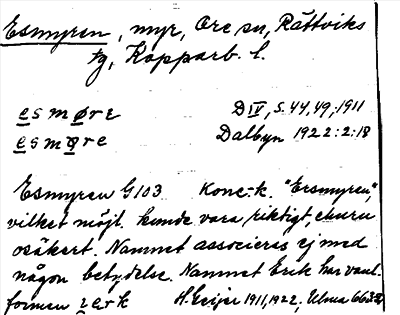 Esmyren, myr, Ore sn, Rättviks
tg, Kopparb. l.
esmøre DIV, S. 44, 49, 1911
esmøre Dalbyn 1922:2:18
Esmyren G103 Konc.-k. "Ersmyren",
vilket möjl. kunde vara riktigt, ehuru
osäkert. Namnet associeras ej med
någon betydelse. Namnet Erik har vanl.
formen H. Geijer 1911, 1922; Ulma 663:2